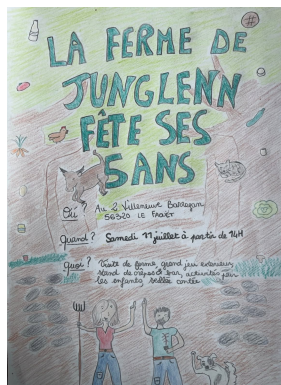 LA FERME DE
JUNGLENN
FÊTE SES
5 ANS
Où ? Au 2 Villeneuve Barregan,
56320 LE FAOUËT
Quand ? Samedi 11 juillet à partir de 14H
Quoi ? Visite de ferme, grand jeu extérieur,
stand de crêpes & bar, activités pour
les enfants, balade contée